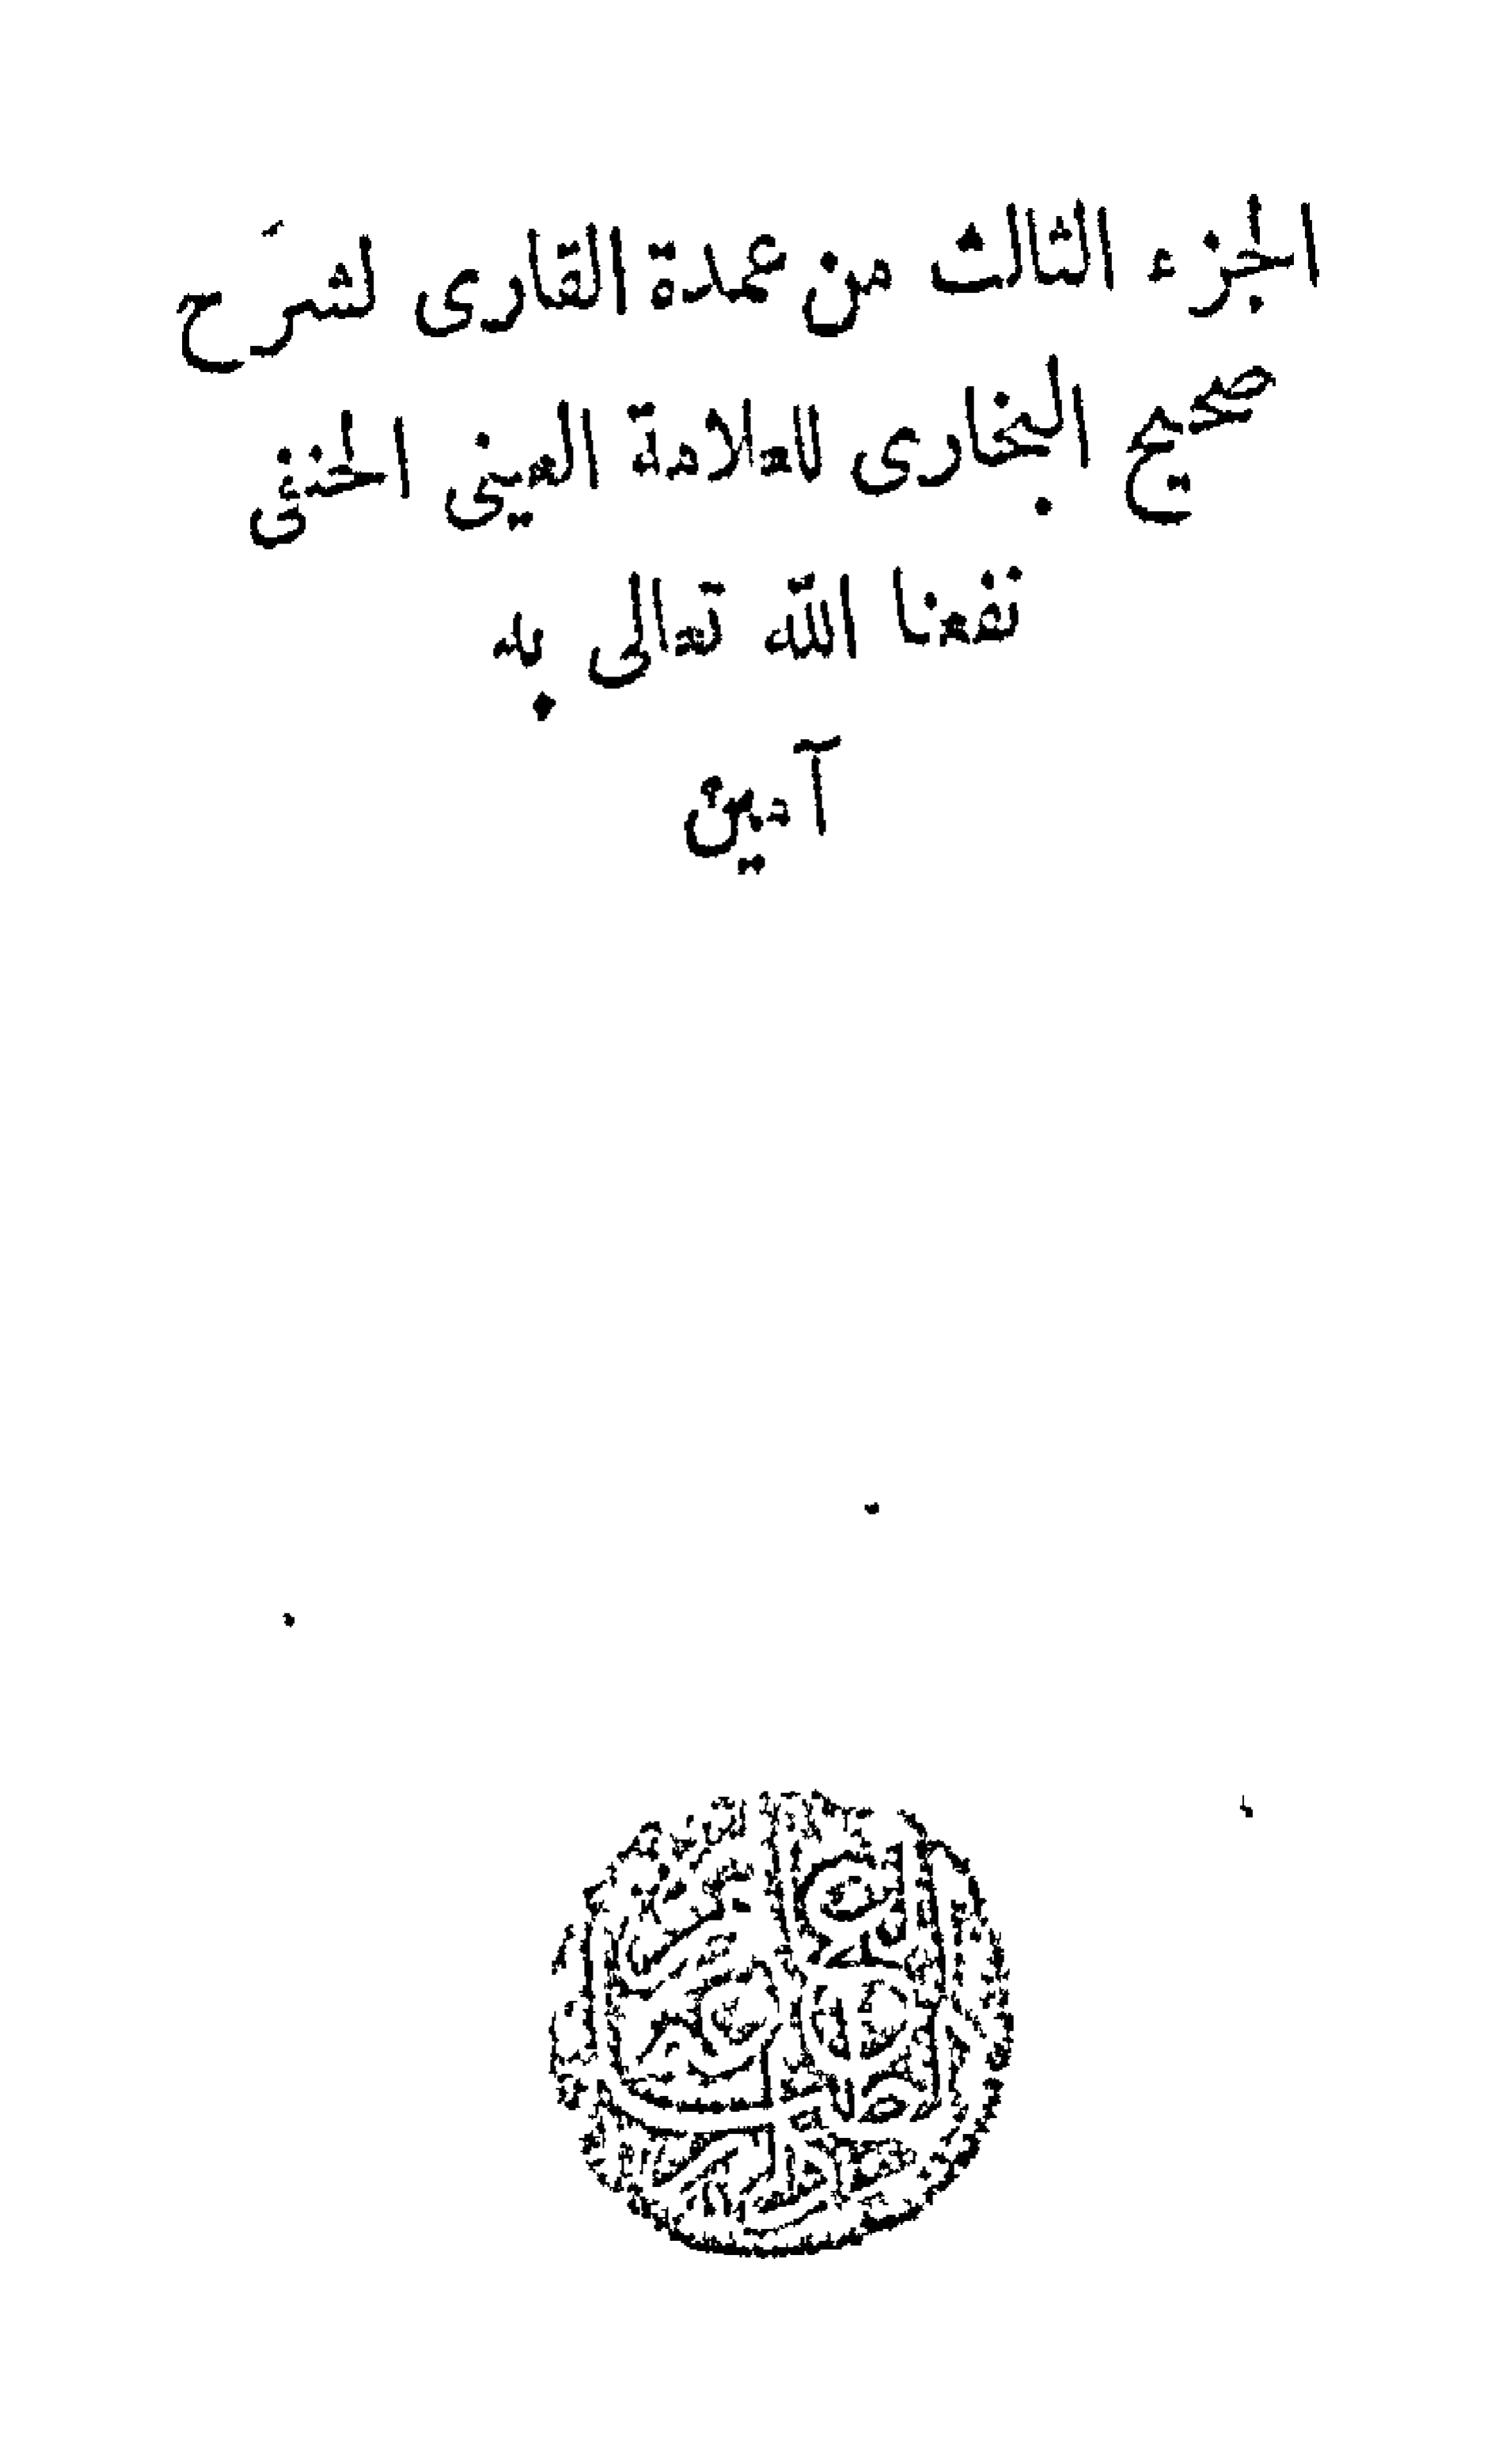 الجزء الثالث من عمدة القارى لشرح
صحيح البخارى للعلامة العينى الحنفى
نفعنا الله تعالى به
آمين